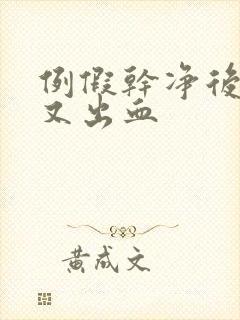 例假幹净後
又出血
黄成文